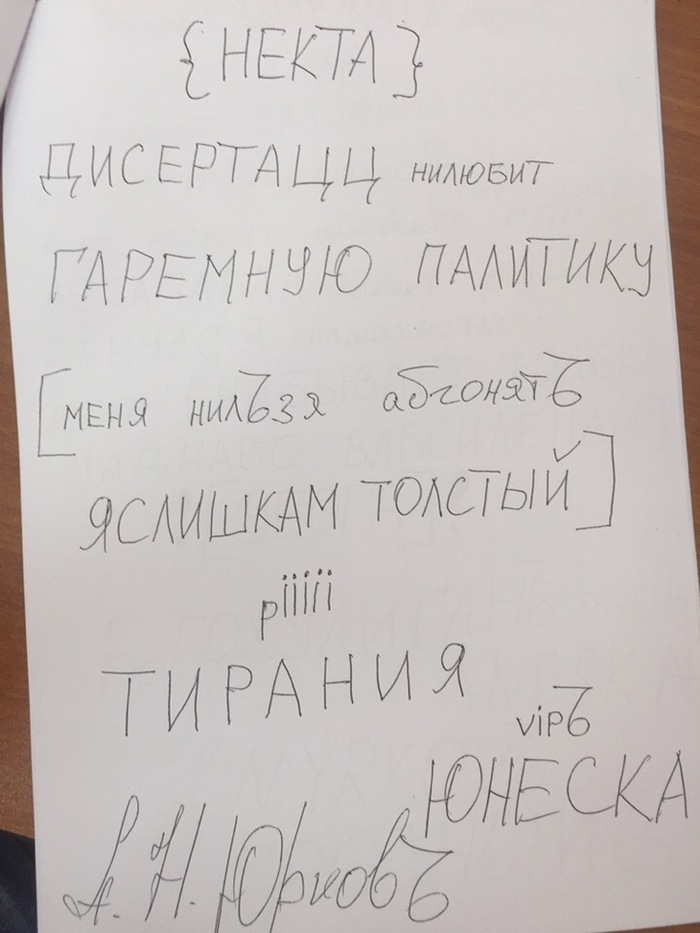 {НЕКТА}
ДИСЕРТАЦЦ НИЛЮБИТ
ГАРЕМНУЮ ПАЛИТИКУ
[МЕНЯ НИЛЪЗЯ абгонятЪ
ЯСЛИШКАМ ТОЛСТЫЙ]
piiiii
ТИРАНИЯ
vipЪ
ЮНЕСКА
А. Н. ЮрковЪ